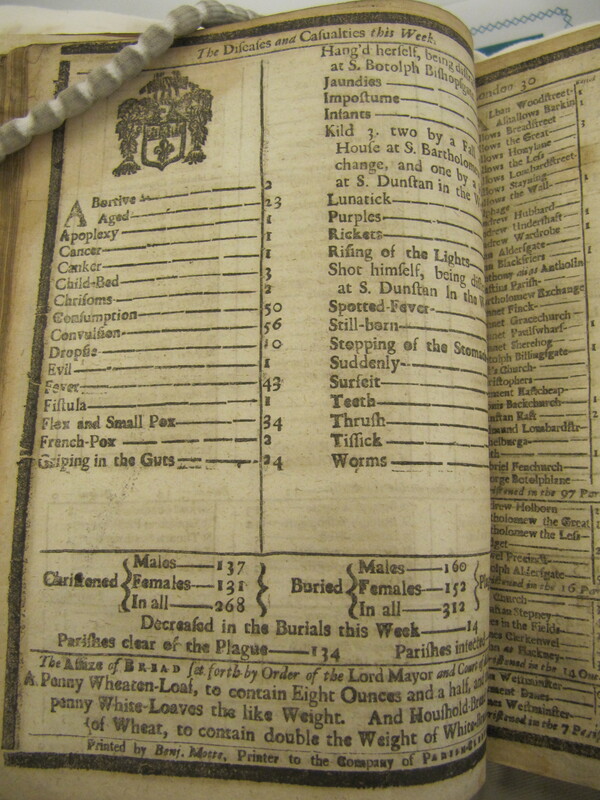 The Diseases and Casualties this Week.
Abortive 2
Aged 23
Apoplexy 1
Cancer 1
Canker 1
Child-Bed 3
Chrisoms 2
Consumption 50
Convulsion 56
Dropsie 10
Evil 1
Fever 43
Fistula 1
Flox and Small Pox 34
French-Pox 2
Griping in the Guts 24
Hang'd herself, being
at S. Botolph Bishopsgate
Jaundies
Impostume
Infants
Kild 3. two by a Fall
House at S. Bartholomew
change, and one by a
at S. Dunstan in the
Lunatick
Purples
Rickets
Rising of the Lights
Shot himself, being
at S. Dunstan In the
Spotted-Fever
Still-born
Stopping of the Stomach
Suddenly
Surfeit
Teeth
Thrush
Tissick
Worms
Christened { Males 137
Females 131
In all 268 }
Buried { Males 160
Females 152
In all 312 }
Decreased in the Burials this Week 14
Parishes clear of the Plague 134 Parishes infected
The Assize of BREAD set forth by Order of the Lord Mayor and Court of
A Penny Wheaten-Loaf, to contain Eight Ounces and a half, and
penny White-Loaves the like Weight. And Houshold-Bread
of Wheat, to contain double the Weight of White
Printed by Benj. Motte, Printer to the Company of
London 30
Alban Woodstreet
Alhallows Barkin
Breadstreet
the Great
Honylane
the Less
Lombardstreet
Stayning
the Wall
Hubbard
Undershaft
Wardrobe
Aldersgate
Blackfriers
alias Antholin
Parish
Exchange
Finck
Gracechurch
Paulswharf
Sherehog
Billingsgate
Church
Eastcheap
Backchurch
East
Lombardstr
Fenchurch
Botolphlane
in the 97 Par
Holborn
the Great
the Less
Aldersgate
in the 16 Par
Church
Stepney
in the Fields
Clerkenwel
Hackney
in the 14 Out
Westminster
Danes
Westminster
in the 7 Parish